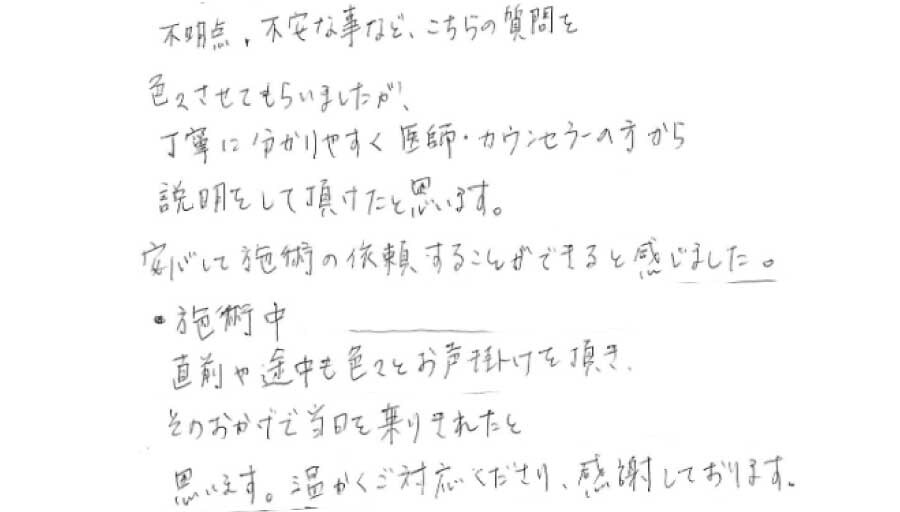 不明点、不安な事など、こちらの質問を
色々させてもらいましたが、
丁寧に分かりやすく医師・カウンセラーの方から
説明をして頂けたと思います。
安心して施術の依頼することができると感じました。
・施術中
直前や途中も色々とお声掛けを頂き、
そのおかげで当日を乗りきれたと
思います。温かくご対応くださり、感謝しております。